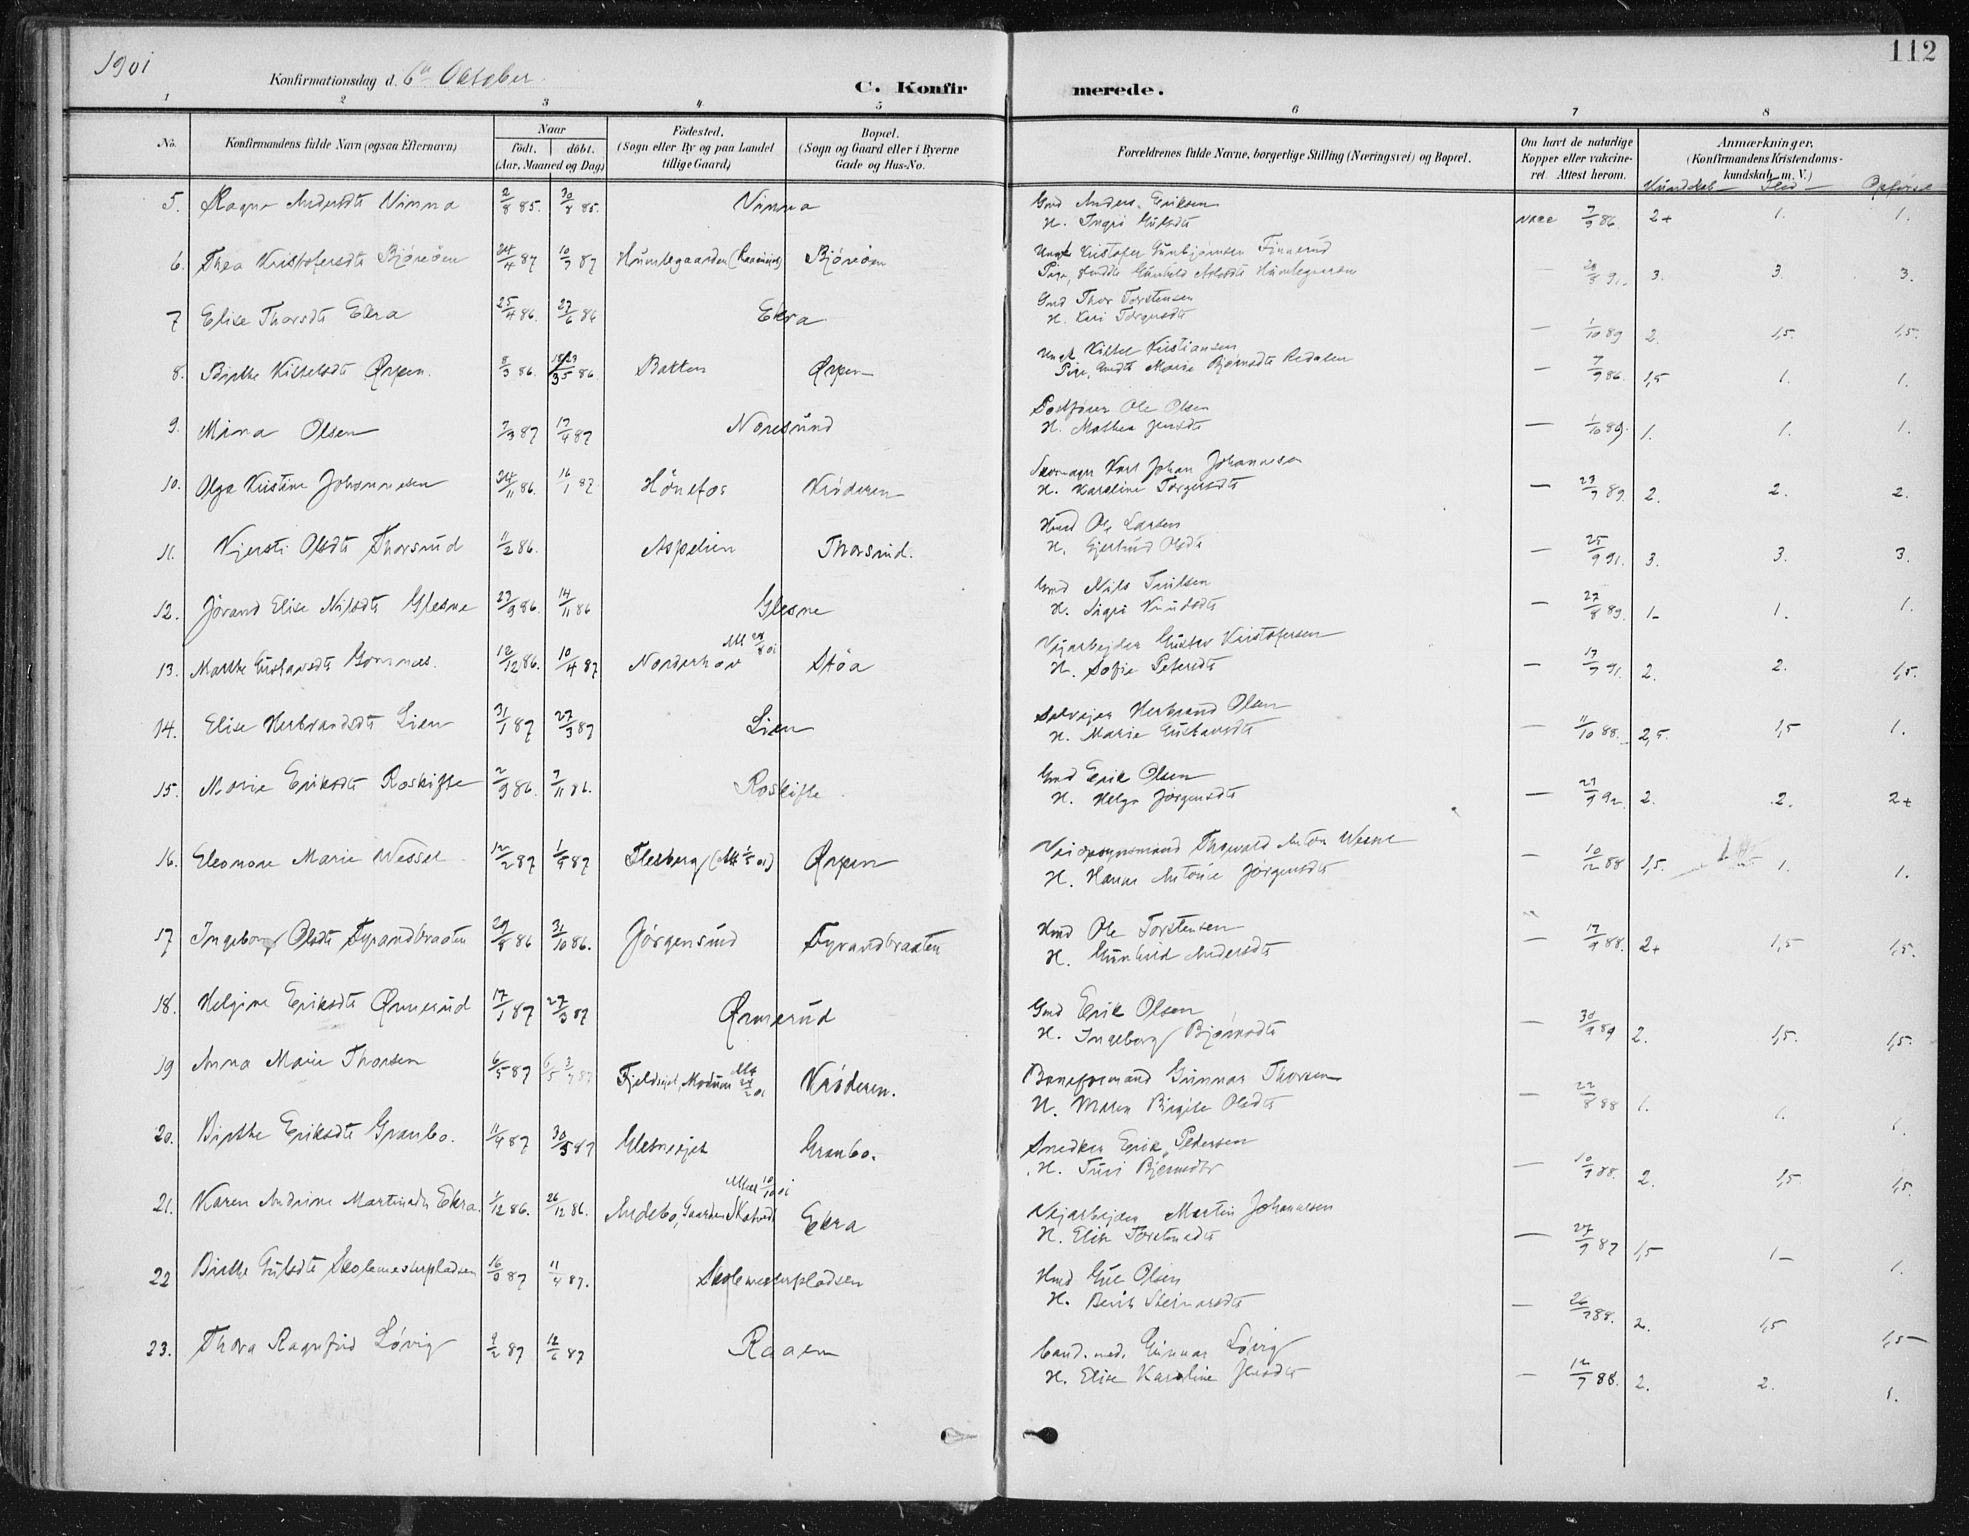 1901
112
Konfirmationsdag d. 6te Oktober
C. Konfirmerede.
1 2 3 4 5 6 7 8
No. Konfirmandens fulde Navn (ogsaa Efternavn) Naar født. døbt. (Aar, Maaned og Dag) Fødested. (Sogn eller By og paa Landet tillige Gaard) Bopæl. (Sogn og Gaard eller i Byerne Gade og Hus-No. Forældrenes fulde Navne, borgerlige Stilling (Næringsvei) og Bopæl. Om havt de naturlige Kopper eller vaccineret. Attest herom. Anmærkninger. (Konfirmandens Kristendomskundskab m. V.)
Kundskab Flid Opførsel
5. Ragna Andersdt. Vinna 2/8 85. 30/8 85. Vinna Gmd Anders Eriksen
H. Ingri Gulsdt. vacc 7/9 86 2+ 1. 1.
6. Thea Kristofersdt. Bjøreøen 24/4 87 10/7 87 Humlegaarden Bjøreøen Ungk Kristofer Gunbjørnsen Finnerud
Pige, Gunhild Humlegaarden — 91. 3. 3. 3.
7 Elise Thorsdt. Ekra 25/4 86. 27/6 86 Ekra Gmd Thor Torstensen
H. Kari Torgersdt. — 1/10 89 2. 1,5. 1,5.
8. Birthe Kittelsdt. Ørpen. 8/3 86. 86. Bakken Ørpen Ungk. Kittel Kristiansen
Pige, Marie Bjørnsdt. Redalen — 7/9 86. 1,5 1. 1.
9. Mina Olsen 7/3 87 17/4 87 Noresund Postfører Ole Olsen
H. Mathea Jensdt. — 1/10 89. 1. 1. 1.
10. Olga Kristine Johannesen 24/11 86. 16/1 87 Hønefos Krøderen Skomager Karl Johan Johannesen
H. Karoline Torgersdt. — 23/9 89. 2. 2. 2.
11. Kjersti Olsdt. Thorsrud 11/2 86. Aspelien Thorsrud. Hmd Ole Larsen
H. Gjertrud Olsdt. — 25/9 91. 3. 3. 3.
12. Jørand Elise Nilsdt. Glesne 23/9 86. 14/11 86 Glesne Gmd Nils Trulsen
H. Sigri Knudsdt. — 27/8 89. 1- 1. 1.
13. Marthe Gustavsdt. Gomnæs. 12/12 86. 10/4 87 Norderhov Støa Vejarbejder Gustav Kristofersen
H. Sofie Petersdt. — 17/9 91. 2. 2. 1,5.
14. Elise Herbrandsdt. Lien 31/1 87 27/3 87 Lien Selvejer Herbrand Olsen
H. Marie Gustavsdt. — 11/10 88. 2,5. 1,5 1.
15. Marie Eriksdt. Roskifte 2/9 86. 7/11 86. Roskifte Gmd Erik Olsen
H. Helga Jørgensdt. — 27/9 92. 2. 2. 2+
16. Eleonore Marie Wessel 12/2 87 1/5 87 Flesberg Ørpen Veiopsynsmand Thorvald Anton Wessel
H. Hanna Antonie Jørgensdt. — 10/12 88 1,5. 1. 1.
17 Ingeborg Olsdt. Tyrandbraaten 29/8 86 31/10 86. Jørgensrud Tyrandbraaten Hmd Ole Torstensen
H. Gunhild Andersdt. — 17/9 88. 2+ 1,5 1,5.
18. Helgine Eriksdt. Ørmerud 17/1 87 27/3 87 Ørmerud Gmd Erik Olsen
H. Ingeborg Bjørnsdt. — 30/9 89 2. 1,5. 1,5.
19 Anna Marie Thorsen 6/5 87 Modum Krøderen. Baneformand Gunnar Thorsen
H. Maren Birgite Olsdt. — 22/8 88 1. 1. 1.
20. Birthe Eriksdt. Granbo. 11/4 87 30/5 87 Glesneejet Granbo. Snedker Erik Pedersen
H. Turi Bjørnsdt. — 10/9 88. 2. 1,5 1,5.
21. Karen Andrine Martinsdt. Ekra. 1/12 86. 26/12 86. Andebo, Gaarden Ekra Vejarbejder Martin Johannesen
H. Elise Torstensdt. — 27/9 87 1,5 1- 1.
22 Birthe Gulsdt. Skolemesterpladsen 87 11/4 87. Skolemesterpladsen Hmd Gul Olsen
H. Berit Steinarsdt. — 88. 2. 1,5 1,5-
23. Thora Ragnfrid Løvig 9/2 87 12/6 87 Raaen Cand. med. Gunnar Løvig
H. Elise Karoline Jensdt. — 12/7 88. 2. 2. 1.